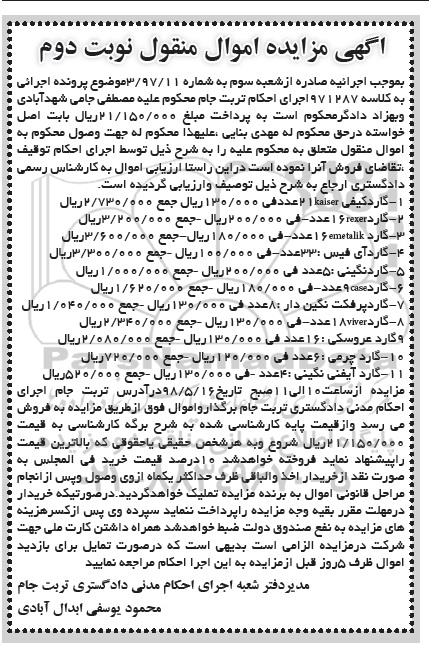 آگهی مزایده اموال منقول نوبت دوم
بموجب اجرائیه صادره ازشعبه سوم به شماره ۳/۹۷/۱۱موضوع پرونده اجرائی
به کلاسه ۹۷۱۲۸۷اجرای احکام تربت جام محکوم علیه مصطفی جامی شهدآبادی
وبهزاد دادگرمحکوم است به پرداخت مبلغ ۲۱/۱۵۰/۰۰۰ریال بابت اصل
خواسته درحق محکوم له مهدی بنایی ،علیهذا محکوم له جهت وصول محکوم به
اموال منقول متعلق به محکوم علیه را به شرح ذیل توسط اجرای احکام توقیف
،تقاضای فروش آنرا نموده است دراین راستا ارزیابی اموال به کارشناس رسمی
دادگستری ارجاع به شرح ذیل توصیف وارزیابی گردیده است.
۱-گاردکیفی kaiser۲۱عددفی ۱۳۰/۰۰۰ریال -جمع ۲/۷۳۰/۰۰۰ریال
۲-گاردrexer۱۶عدد-فی ۲۰۰/۰۰۰ریال -جمع ۳/۲۰۰/۰۰۰ریال
۳-گارد emetalik۱۶عدد-فی ۱۸۰/۰۰۰ریال-جمع ۳/۶۰۰/۰۰۰ریال
۴-گاردآی فیس :۳۳عدد-فی ۱۰۰/۰۰۰ریال -جمع ۳/۳۰۰/۰۰۰ریال
۵-گاردنگینی :۵عدد فی ۲۰۰/۰۰۰ریال -جمع ۱/۰۰۰/۰۰۰ریال
۶-گاردcase۹عدد-فی ۱۸۰/۰۰۰ ریال -جمع ۱/۶۲۰/۰۰۰ریال
۷-گاردپرفکت نگین دار :۸عدد فی ۱۳۰/۰۰۰ریال -جمع ۱/۰۴۰/۰۰۰ریال
۸-گاردviver۱۸عدد-فی ۱۳۰/۰۰۰ریال -جمع ۲/۳۴۰/۰۰۰ریال
۹گارد عروسکی :۱۶عدد فی ۱۳۰/۰۰۰ریال-جمع ۲/۰۸۰/۰۰۰ریال
۱۰-گارد چرمی :۶عدد فی ۱۲۰/۰۰۰ریال -جمع ۷۲۰/۰۰۰ریال
۱۱-گارد آیفنی نگینی :۴عدد -فی ۱۳۰/۰۰۰ریال-جمع ۵۲۰/۰۰۰ریال
مزایده ازساعت۱۰الی۱۱صبح تاریخ۹۸/۵/۱۶درآدرس تربت جام اجرای
احکام مدنی دادگستری تربت جام برگذارواموال فوق ازطریق مزایده به فروش
می رسد وازقیمت پایه کارشناسی شده به شرح برگه کارشناسی به قیمت
۲۱/۱۵۰/۰۰۰ریال شروع وبه هرشخص حقیقی یاحقوقی که بالاترین قیمت
راپیشنهاد نماید فروخته خواهدشد ۱۰درصد قیمت خرید فی المجلس به
صورت نقد ازخریدار اخذ والباقی ظرف حداکثر یکماه ازوی وصول وپس ازانجام
مراحل قانونی اموال به برنده مزایده تملیک خواهدگردید.درصورتیکه خریدار
درمهلت مقرر بقیه وجه مزایده راپرداخت ننماید سپرده وی پس ازکسرهزینه
های مزایده به نفع صندوق دولت ضبط خواهدشد همراه داشتن کارت ملی جهت
شرکت درمزایده الزامی است بدیهی است که درصورت تمایل برای بازدید
اموال ظرف ۵روز قبل ازمزایده به این اجرا احکام مراجعه نمایید
مدیردفتر شعبه اجرای احکام مدنی دادگستری تربت جام
محمود یوسفی ابدال آبادی